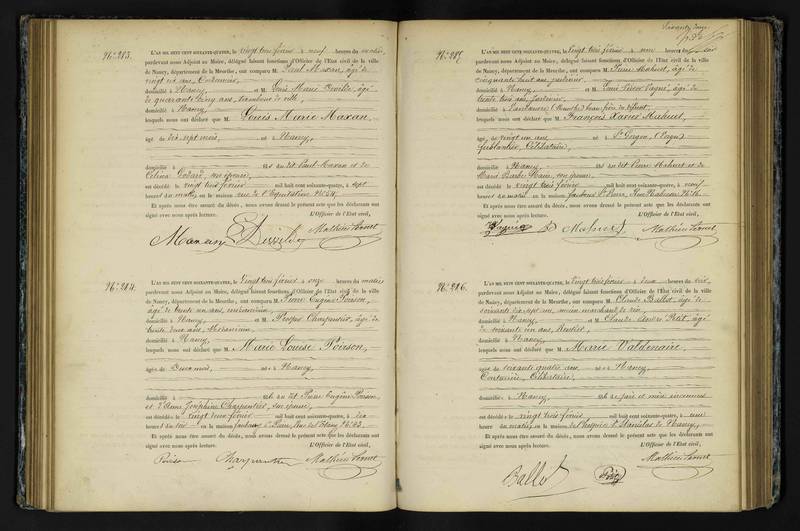 N° 283.
L'AN MIL HUIT CENT SOIXANTE-QUATRE, le vingt trois février à neuf heures du matin,
pardevant nous Adjoint au Maire, délégué faisant fonctions d'Officier de l'Etat civil de la ville
de Nancy, département de la Meurthe, ont comparu M. Paul Maxan, âgé de
vingt six ans, Cordonnier,
domicilié à Nancy, et M. Louis Marie âgé
de quarante cinq ans, tambour de ville,
domicilié à Nancy,
lesquels nous ont déclaré que M. Louis Marie Maxan,
âgé de dix sept mois, né à Nancy,
domicilié à fils du dit Paul Maxan et de
Célina Godard, son épouse,
est décédé le vingt trois février mil huit cent soixante-quatre, à sept
heures du matin, en la maison rue de l'Equitation N° 54.
Et après nous être assuré du décès, nous avons dressé le présent acte que les déclarants ont
signé avec nous après lecture. L'Officier de l'Etat civil,
Maxan
N° 284.
L'AN MIL HUIT CENT SOIXANTE-QUATRE, le vingt trois février à onze heures du matin
pardevant nous Adjoint au Maire, délégué faisant fonctions d'Officier de l'Etat civil de la ville
de Nancy, département de la Meurthe, ont comparu M. Pierre Eugène Poirson,
âgé de trente un ans,
domicilié à Nancy, et M. Prosper Charpentier, âgé de
trente deux ans,
domicilié à Nancy,
lesquels nous ont déclaré que M. Marie Louise Poirson,
âgée de Deux mois, née à Nancy,
domicilié à fille du dit Pierre Eugène Poirson
et d'Anne Joséphine Charpentier, son épouse,
est décédée le vingt deux février mil huit cent soixante-quatre, à dix
heures du soir en la maison faubourg St Pierre, Rue N° 23.
Et après nous être assuré du décès, nous avons dressé le présent acte que les déclarants ont
signé avec nous après lecture. L'Officier de l'Etat civil,
Poirson Charpentier
N° 285.
L'AN MIL HUIT CENT SOIXANTE-QUATRE, le vingt trois février à une heures du soir
pardevant nous Adjoint au Maire, délégué faisant fonctions d'Officier de l'Etat civil de la ville
de Nancy, département de la Meurthe, ont comparu M. Pierre Mahuet, âgé de
cinquante huit ans, jardinier,
domicilié à Nancy, et M. Paul Vagné, âgé de
trente trois ans,
domicilié à (Meurthe) beau frère du défunt,
lesquels nous ont déclaré que M. François Xavier Mahuet,
âgé de vingt un ans né à St Gorgon (Vosges)
ferblantier, Célibataire,
domicilié à Nancy, fils du dit Pierre Mahuet et de
Marie Barbe son épouse
est décédé le vingt trois février mil huit cent soixante-quatre, à neuf
heures du matin en la maison faubourg St Pierre,
Et après nous être assuré du décès, nous avons dressé le présent acte que les déclarants ont
signé avec nous après lecture. L'Officier de l'Etat civil,
Mahuet
N° 286.
L'AN MIL HUIT CENT SOIXANTE-QUATRE, le vingt trois février à deux heures du soir
pardevant nous Adjoint au Maire, délégué faisant fonctions d'Officier de l'Etat civil de la ville
de Nancy, département de la Meurthe, ont comparu M. Claude Ballot, âgé de
soixante dix sept ans, ancien marchand de vin
domicilié à Nancy, et M. Claude Petit, âgé
de soixante un ans, Rentier,
domicilié à Nancy,
lesquels nous ont déclaré que M. Marie Valdenaire,
âgée de soixante quatre ans née à Nancy,
Célibataire,
domicilié à Nancy, fille de père et mère inconnus
est décédée le vingt trois février mil huit cent soixante-quatre, à une
heures du matin en la maison de l'hospice St Stanislas de Nancy,
Et après nous être assuré du décès, nous avons dressé le présent acte que les déclarants ont
signé avec nous après lecture. L'Officier de l'Etat civil,
Ballot Petit